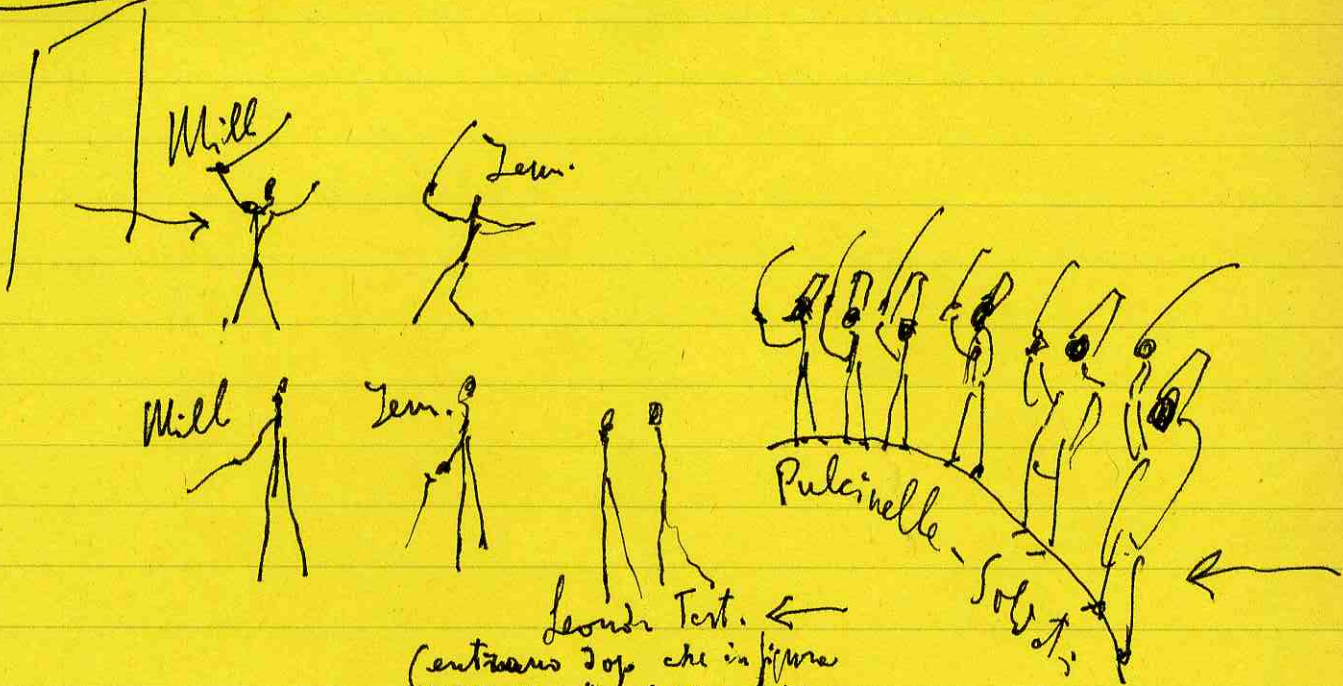 Mill
Jem.
Mill
Jem.
Pulcinelle - Soldati
Test.
(entrano dop che in figura